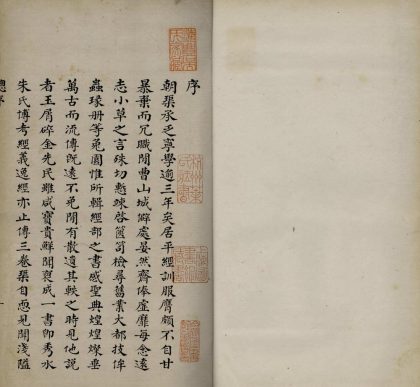 序
朝渠承乏寧學逾三年矣居平經訓服膺頗不自甘
暴棄而冗職閒曹山城僻處晏然齋俸虛靡每念遠
志小草之言殊切慙竦啓篋笥檢尋舊業大都技侔
蟲瑑册等兔園惟所輯經部之書感聖典煌煌燦垂
萬古而流傳既遠不免閒有散遺其軼之時見他說
者玉屑碎金先民雖咸寶貴鮮聞裒成一書即秀水
朱氏博考經義逸經亦止傳三卷渠自恧見聞淺隘
總序